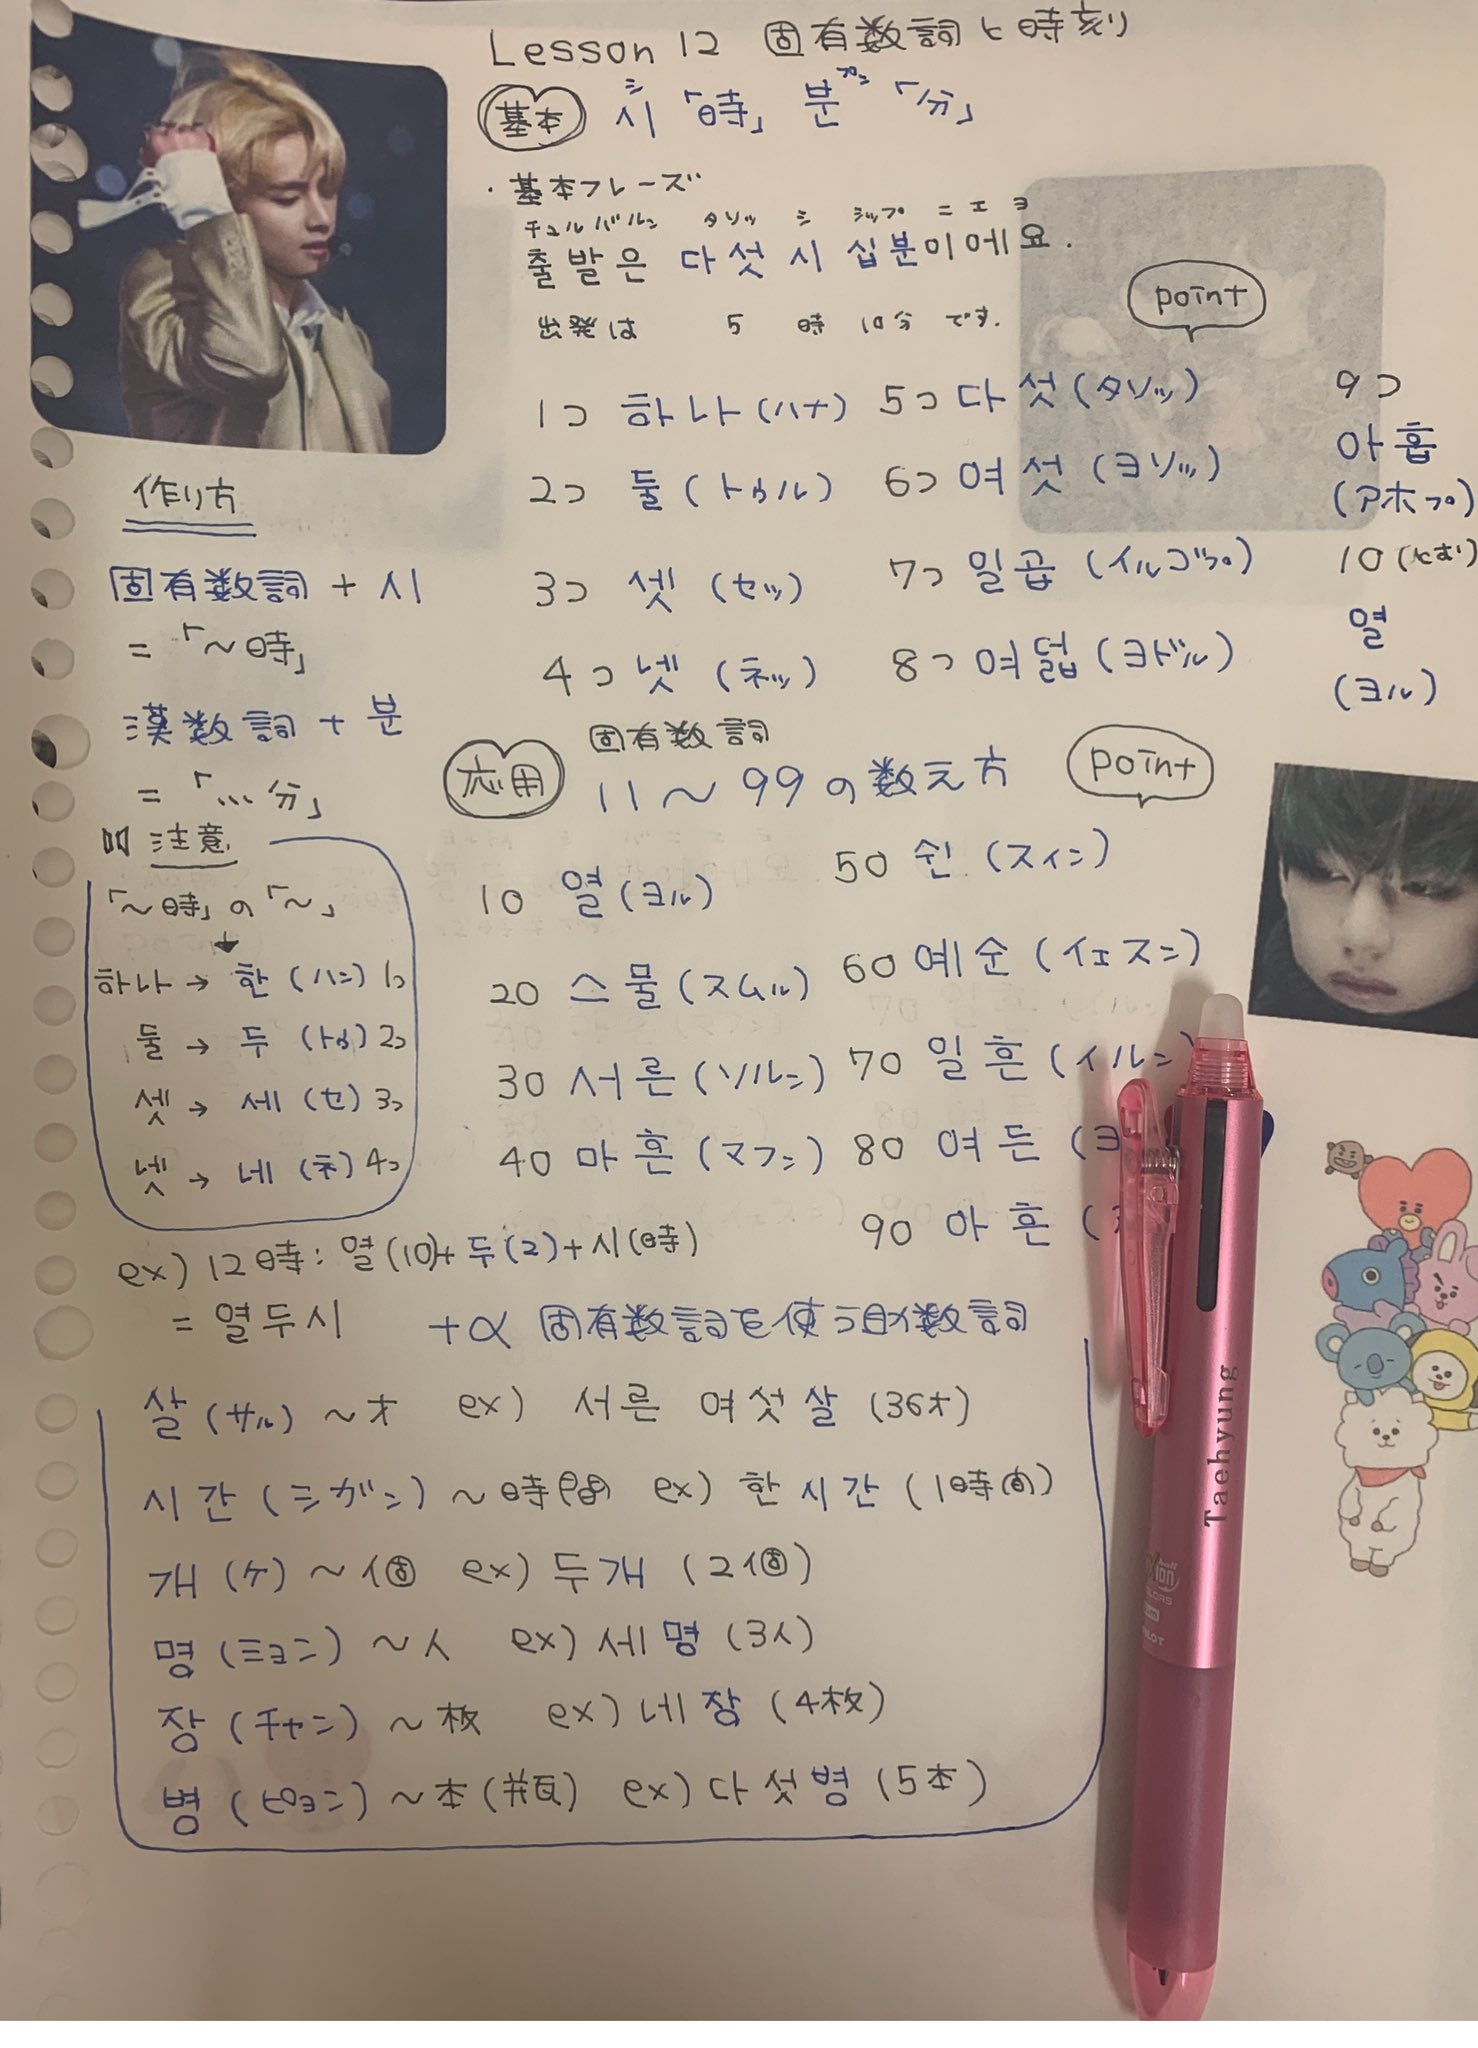 Lesson 12 固有数詞と時刻
基本 시「時」 분「分」
シ プン
・基本フレーズ
チュルバルン タソッ シ シップ ニエヨ
출발은 다섯 시 십분이에요.
出発は 5 時 10分 です.
point
1つ 하나 (ハナ)
2つ 둘 (トゥル)
3つ 셋 (セッ)
4つ 넷 (ネッ)
5つ 다섯 (タソッ)
6つ 여섯 (ヨソッ)
7つ 일곱 (イルゴプ)
8つ 여덟 (ヨドル)
9つ
아홉
(アホプ)
10 (とお)
열
(ヨル)
作り方
固有数詞 + 시
=「〜時」
漢数詞 + 분
=「…分」
注意
「〜時」の「〜」
↓
하나 → 한 (ハン) 1つ
둘 → 두 (トゥ) 2つ
셋 → 세 (セ) 3つ
넷 → 네 (ネ) 4つ
ex) 12時: 열(10)+두(2)+시(時)
= 열두시
応用 固有数詞
11〜99の数え方
point
10 열 (ヨル)
20 스물 (スムル)
30 서른 (ソルン)
40 마흔 (マフン)
50 쉰 (スィン)
60 예순 (イェスン)
70 일흔 (イルン
80 여든 (ヨ
90 아흔 (
+α 固有数詞を使う助数詞
살 (サル) 〜才 ex) 서른 여섯살 (36才)
시간 (シガン) 〜時間 ex) 한시간 (1時間)
개 (ケ) 〜個 ex) 두개 (2個)
명 (ミョン) 〜人 ex) 세명 (3人)
장 (チャン) 〜枚 ex) 네장 (4枚)
병 (ピョン) 〜本(瓶) ex) 다섯병 (5本)
Taehyung